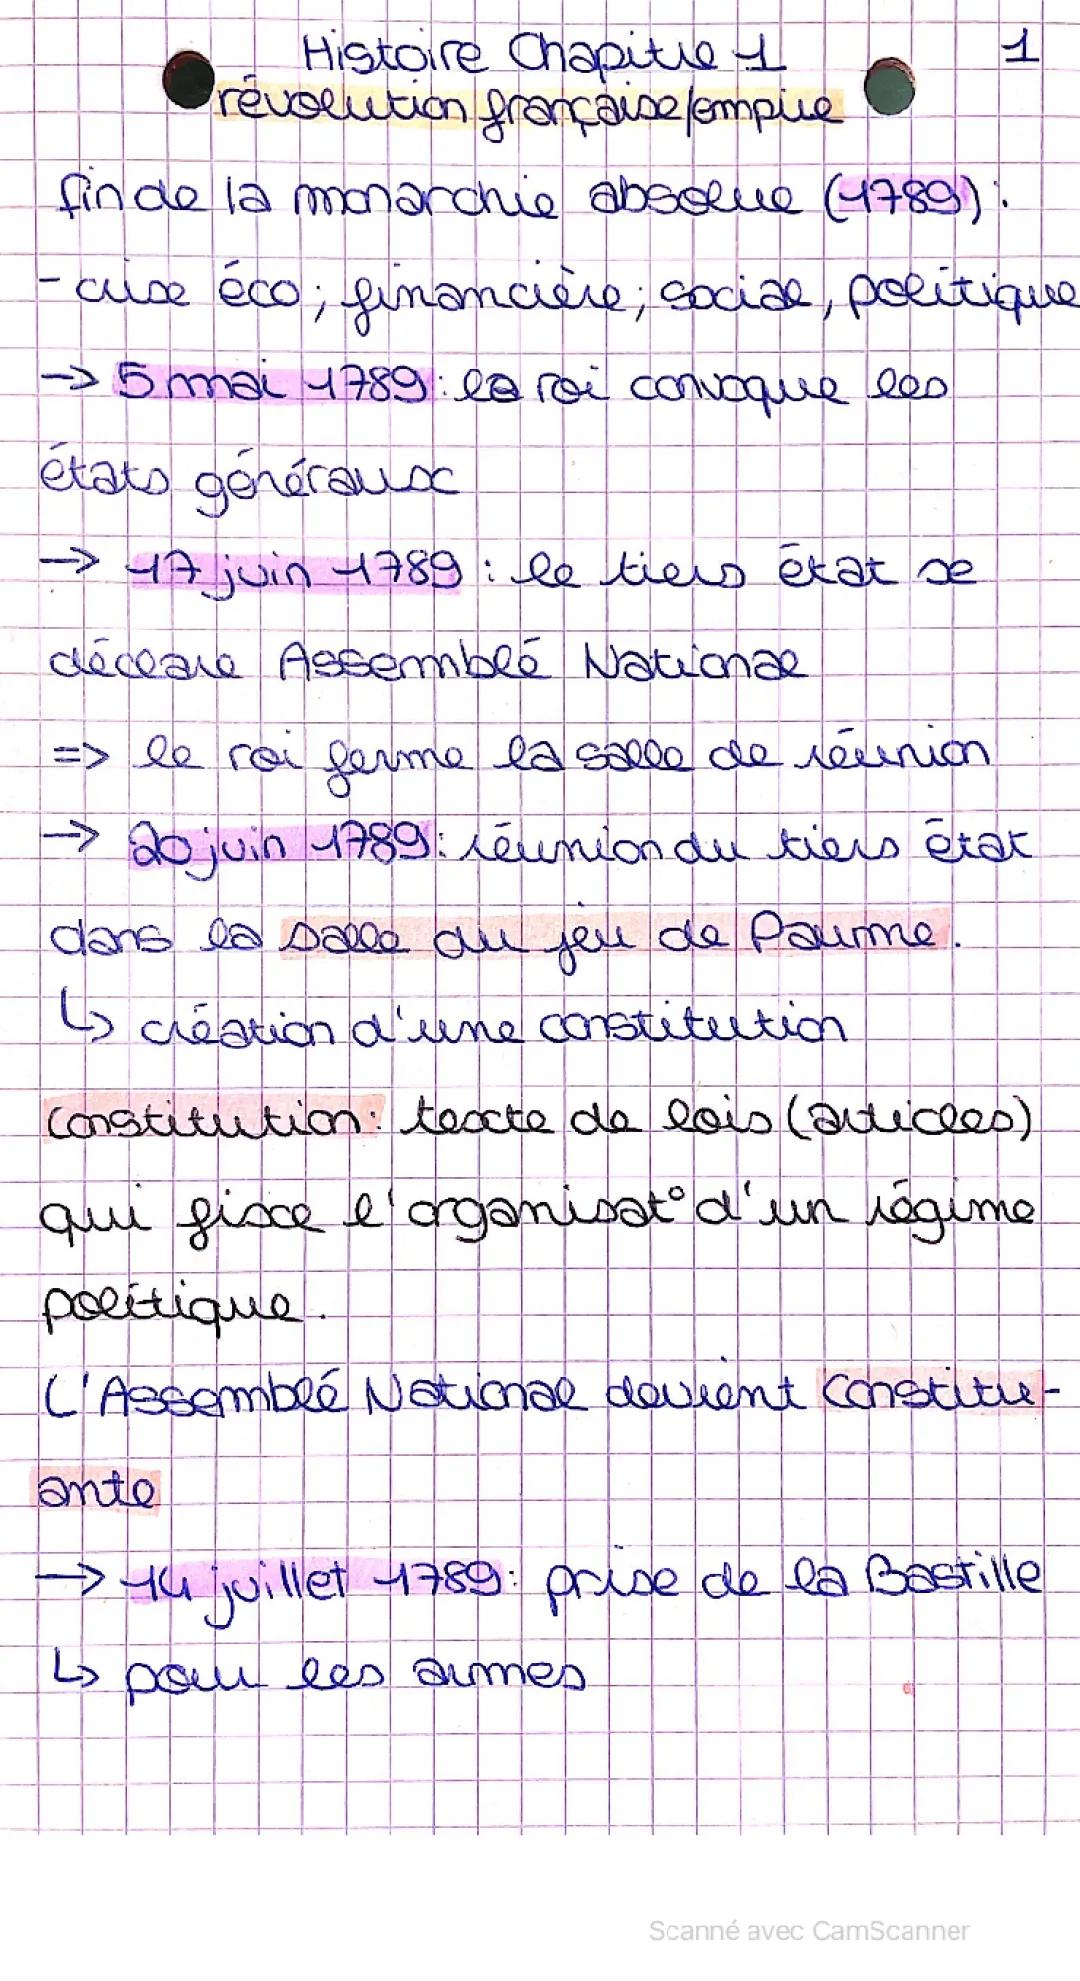 Histoire Chapitre 1
1
révolution française/empire
fin de la monarchie absolue (1789) :
- crise éco ; financière ; sociale, politique
→ 5 mai 1789 : le roi convoque les
états généraux
→ 17 juin 1789 : le tiers état se
déclare Assemblé Nationale
=> le roi ferme la salle de réunion
→ 20 juin 1789 : réunion du tiers état
dans la salle du jeu de Paume.
↳ création d'une constitution
Constitution : texte de lois (articles)
qui fixe l'organisat° d'un régime
politique.
L'Assemblé Nationale devient Constitu-
ante
→ 14 juillet 1789 : prise de la Bastille
↳ pour les armes
Scanné avec CamScanner